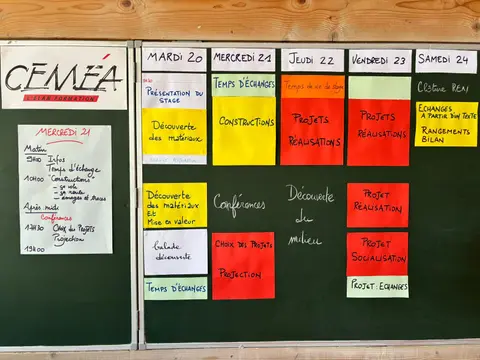 CEMÉA
MERCREDI 21
Matin
9H00 Infos
Temps d'échange
10H00 Constructions
- ça vole
- ça roule
Après midi
Conférences
17H30 Choix des Projets
Projection
19H00
MARDI 20
PRÉSENTATION DU
STAGE
Découverte
des matériaux
Découverte
des matériaux
ET
Mise en valeur
balade
découverte
TEMPS D'ÉCHANGES
MERCREDI 21
TEMPS D'ÉCHANGES
CONSTRUCTIONS
Conférences
CHOIX DES PROJETS
PROJECTION
JEUDI 22
Temps de vie de stage
PROJETS
RÉALISATIONS
Découverte
du
milieu
VENDREDI 23
PROJETS
RÉALISATIONS
PROJET
RÉALISATION
PROJET
SOCIALISATION
PROJET : ECHANGES
SAMEDI 24
Clôture REM
ECHANGES
A PARTIR D'UN TEXTE
RANGEMENTS
BILAN